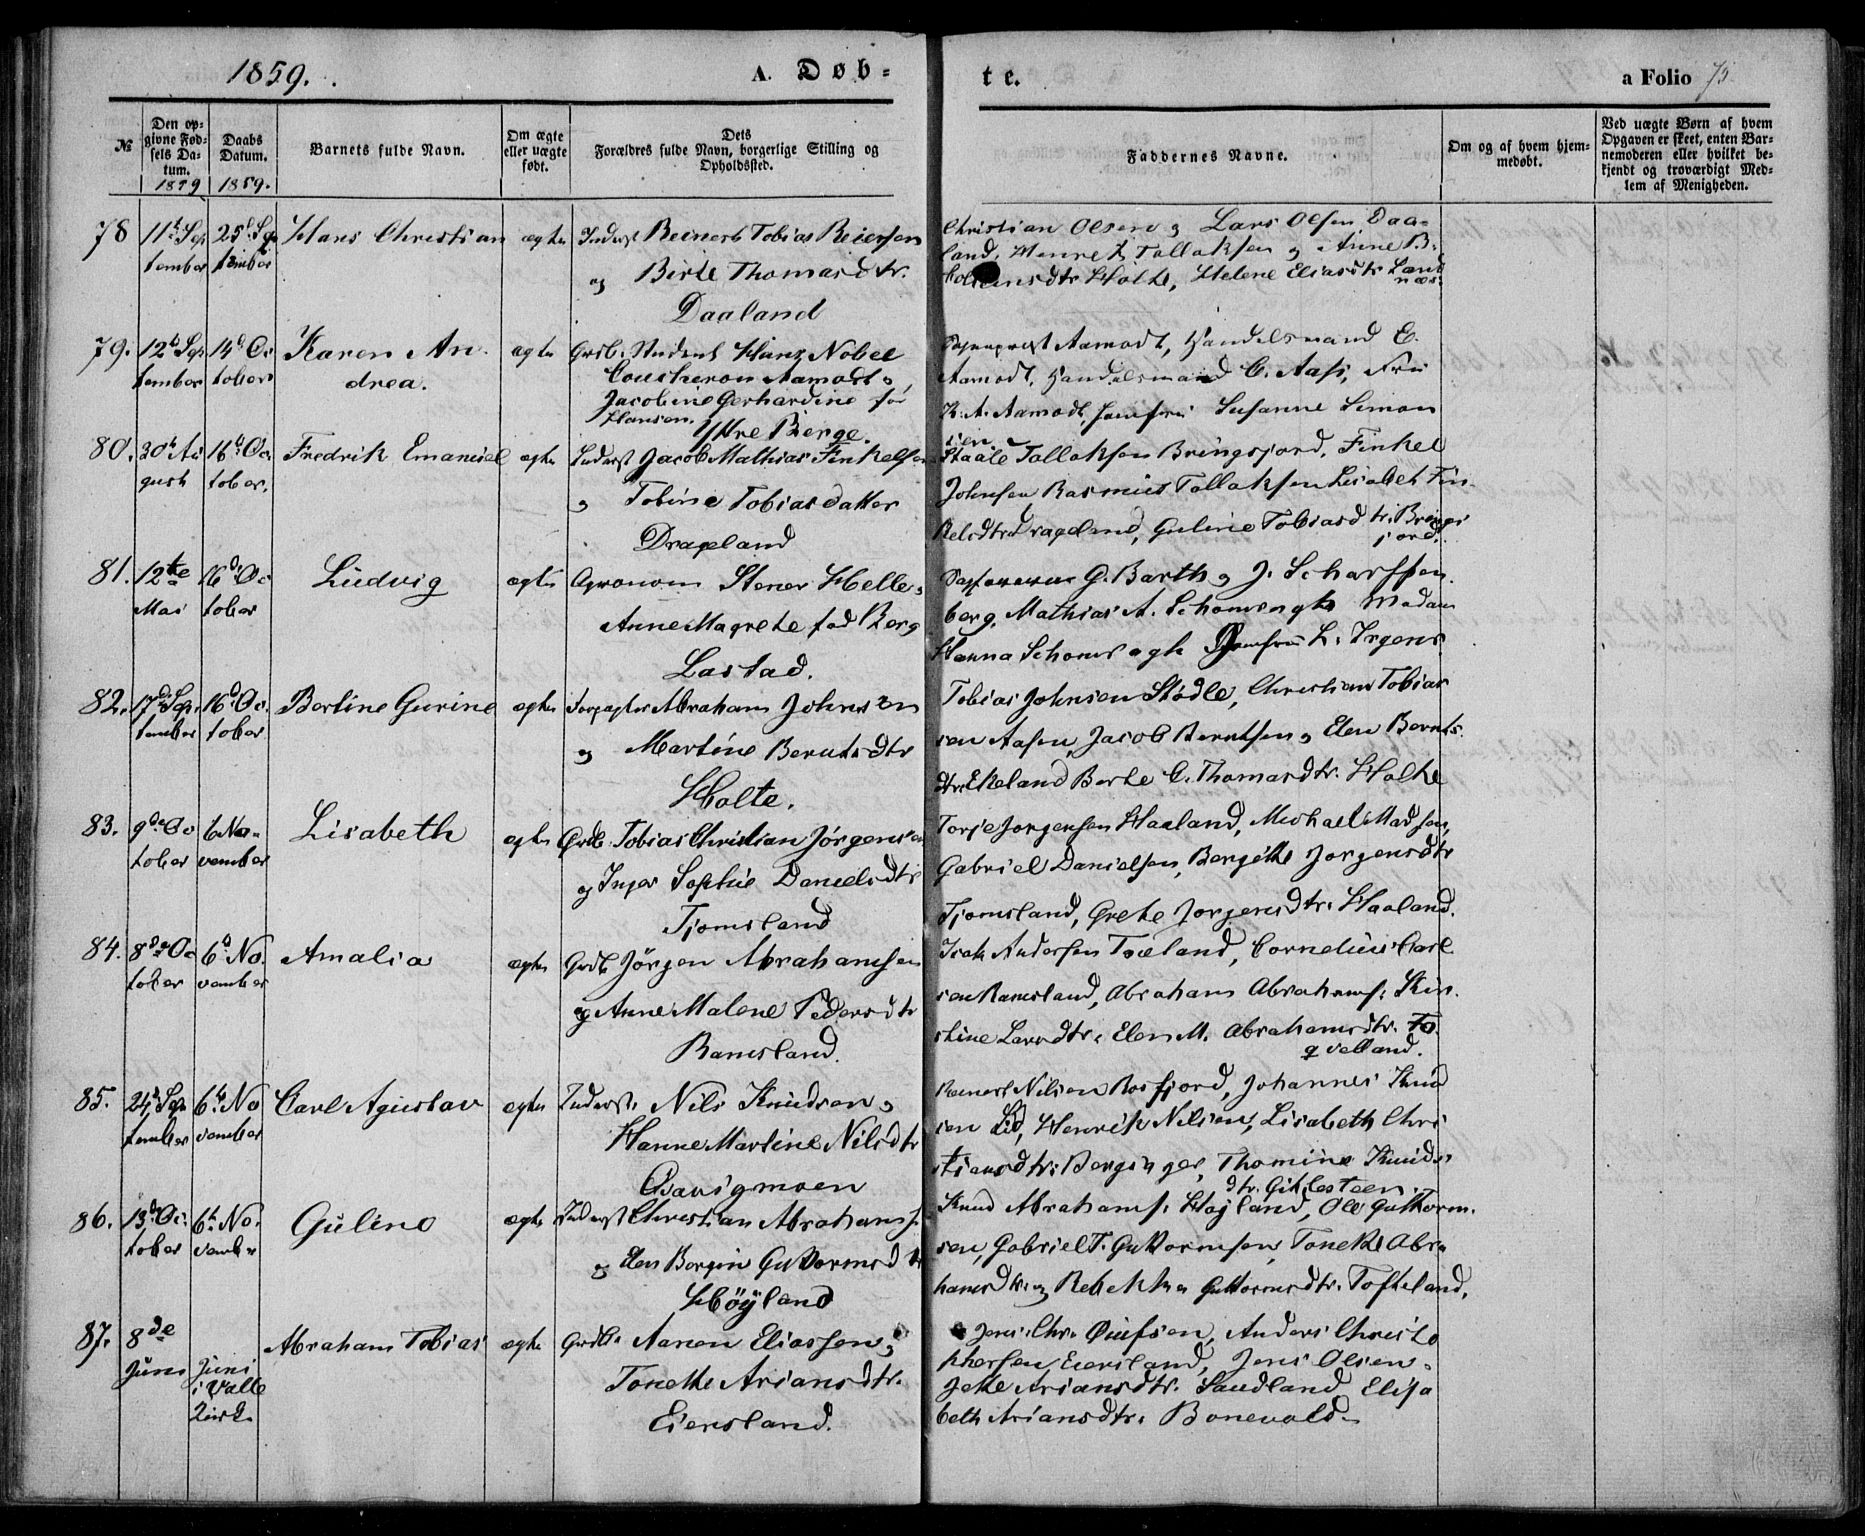 1859.
A. Døb-
te.
a Folio 75
№
Den op-
givne Fød-
sels Da-
tum.
1859
Daabs
Datum.
1859.
Barnets fulde Navn.
Om ægte
eller uægte
født.
Dets
Forældres fulde Navn, borgerlige Stilling og
Opholdssted.
Faddernes Navne.
Om og af hvem hjem-
medøbt.
Ved uægte Børn af hvem
Opgaven er skeet, enten Bar-
nemoderen eller hvilket be-
kjendt og troværdigt Med-
lem af Menigheden.
78
11t Sep
tember
25d Sep
tember
Hans Christian
ægte
Inderst Reinert Tobias Reiersen
og Birte Thomasdtr.
Daaland
Christian Olsen og Lars Olsen Daa-
land, Tallaksen og Anne B.
Holte, Helene Eliasdtr Land
næs.
79.
12t Sep
tember
14d Oc
tober
Karen An
drea.
ægte
Grdb. Student Hans Nobel
Aamodt og
Jacobine Gerhardine fød
Hansen. Ytre Berge.
Aamodt, Handelsmand C.
Aamodt, Handelsmand C. Aass, Fru
K. A. Aamodt, Jomfru Susanne Simon
sen
80.
30t Au
gust
16d Oc
tober.
Fredrik Emanuel
ægte
Inderst Jacob Mathias Finkelsen
og Tobine Tobiasdatter
Drageland
Staale Tallaksen Bringsjord, Finkel
Johnsen Rasmus Tallaksen Lisabet Fin
kelsdtr Drageland, Guline Tobiasd tr. Brings
jord.
81.
12te
Mai
16d Oc
tober
Ludvig
ægte
Agronom Stener Helle og
Anne Magrete fød Berg
Lastad.
G. Barth og J. Scharffen
berg, Mathias A. Madam
Hanna Jomfru L. Irgens
82.
17d Sep.
tember
16d Oc.
tober
Bertine Gurine
ægte
Forpagter Abraham Johnsen
og Martine Berntsdtr
Holte.
Tobias Johnsen Stødle, Christian Tobias
sen Aasen, Jacob Berntsen og Elen Bernts
dtr. Ekeland Berte C. Thomasdtr. Holte
83.
9de Oc
tober
6 No-
vember
Lisabeth
ægte
Grdb. Tobias Christian Jørgensen
og Inger Sophie Danielsdtr
Tjomsland
Torje Jørgensen Haaland, Michael Madsen,
Gabriel Danielsen, Bergitte Jørgensdtr
Tjomsland, Grete Jørgensdtr. Haaland.
84.
8de Oc
tober
6d No.
vember
Amalia
ægte
Grdb Jørgen Abrahamsen
og Anne Malene Pedersdtr
Ramsland.
Isak Andersen Cornelius Carl
sen Ramsland, Abraham Abrahams. Kin
stine Larsdtr. Elen M. Abrahamsdtr. To
qvelland.
85.
24d Sep
tember
6t No
vember
Carl Agustav
ægte
Inderst. Nils Knudsen og
Hanne Martine Nilsdtr
Qvavigmoen
Reinert Nilsen Rosfjord, Johannes Knud
sen Lid, Henrik Nilsen, Lisabeth Chri
stiansdtr. Thomine Knuds
dtr.
86.
13d Oc.
tober
6t No.
vember
Guline
ægte
Inderst Christian Abrahams.
og Elen Guttormsdtr
Høyland
Knud Abrahams. Højland, Ole Guttorm
sen, Gabriel T. Guttormsen, Tonette Abra
hamsdtr. og Rebekka Guttormsdtr. Tofteland.
87.
8de
Juni
Juni
i Valle
Kirke
Abraham Tobias
ægte
Grdb. Aanen Eliassen og
Tonette Ariansdtr.
Eiersland.
Jens Chr. Anders Christo
phersen Eiersland, Jens Olsen
Jette Ariansdtr. Sandland Elisa
beth Ariansdtr. Bonevald